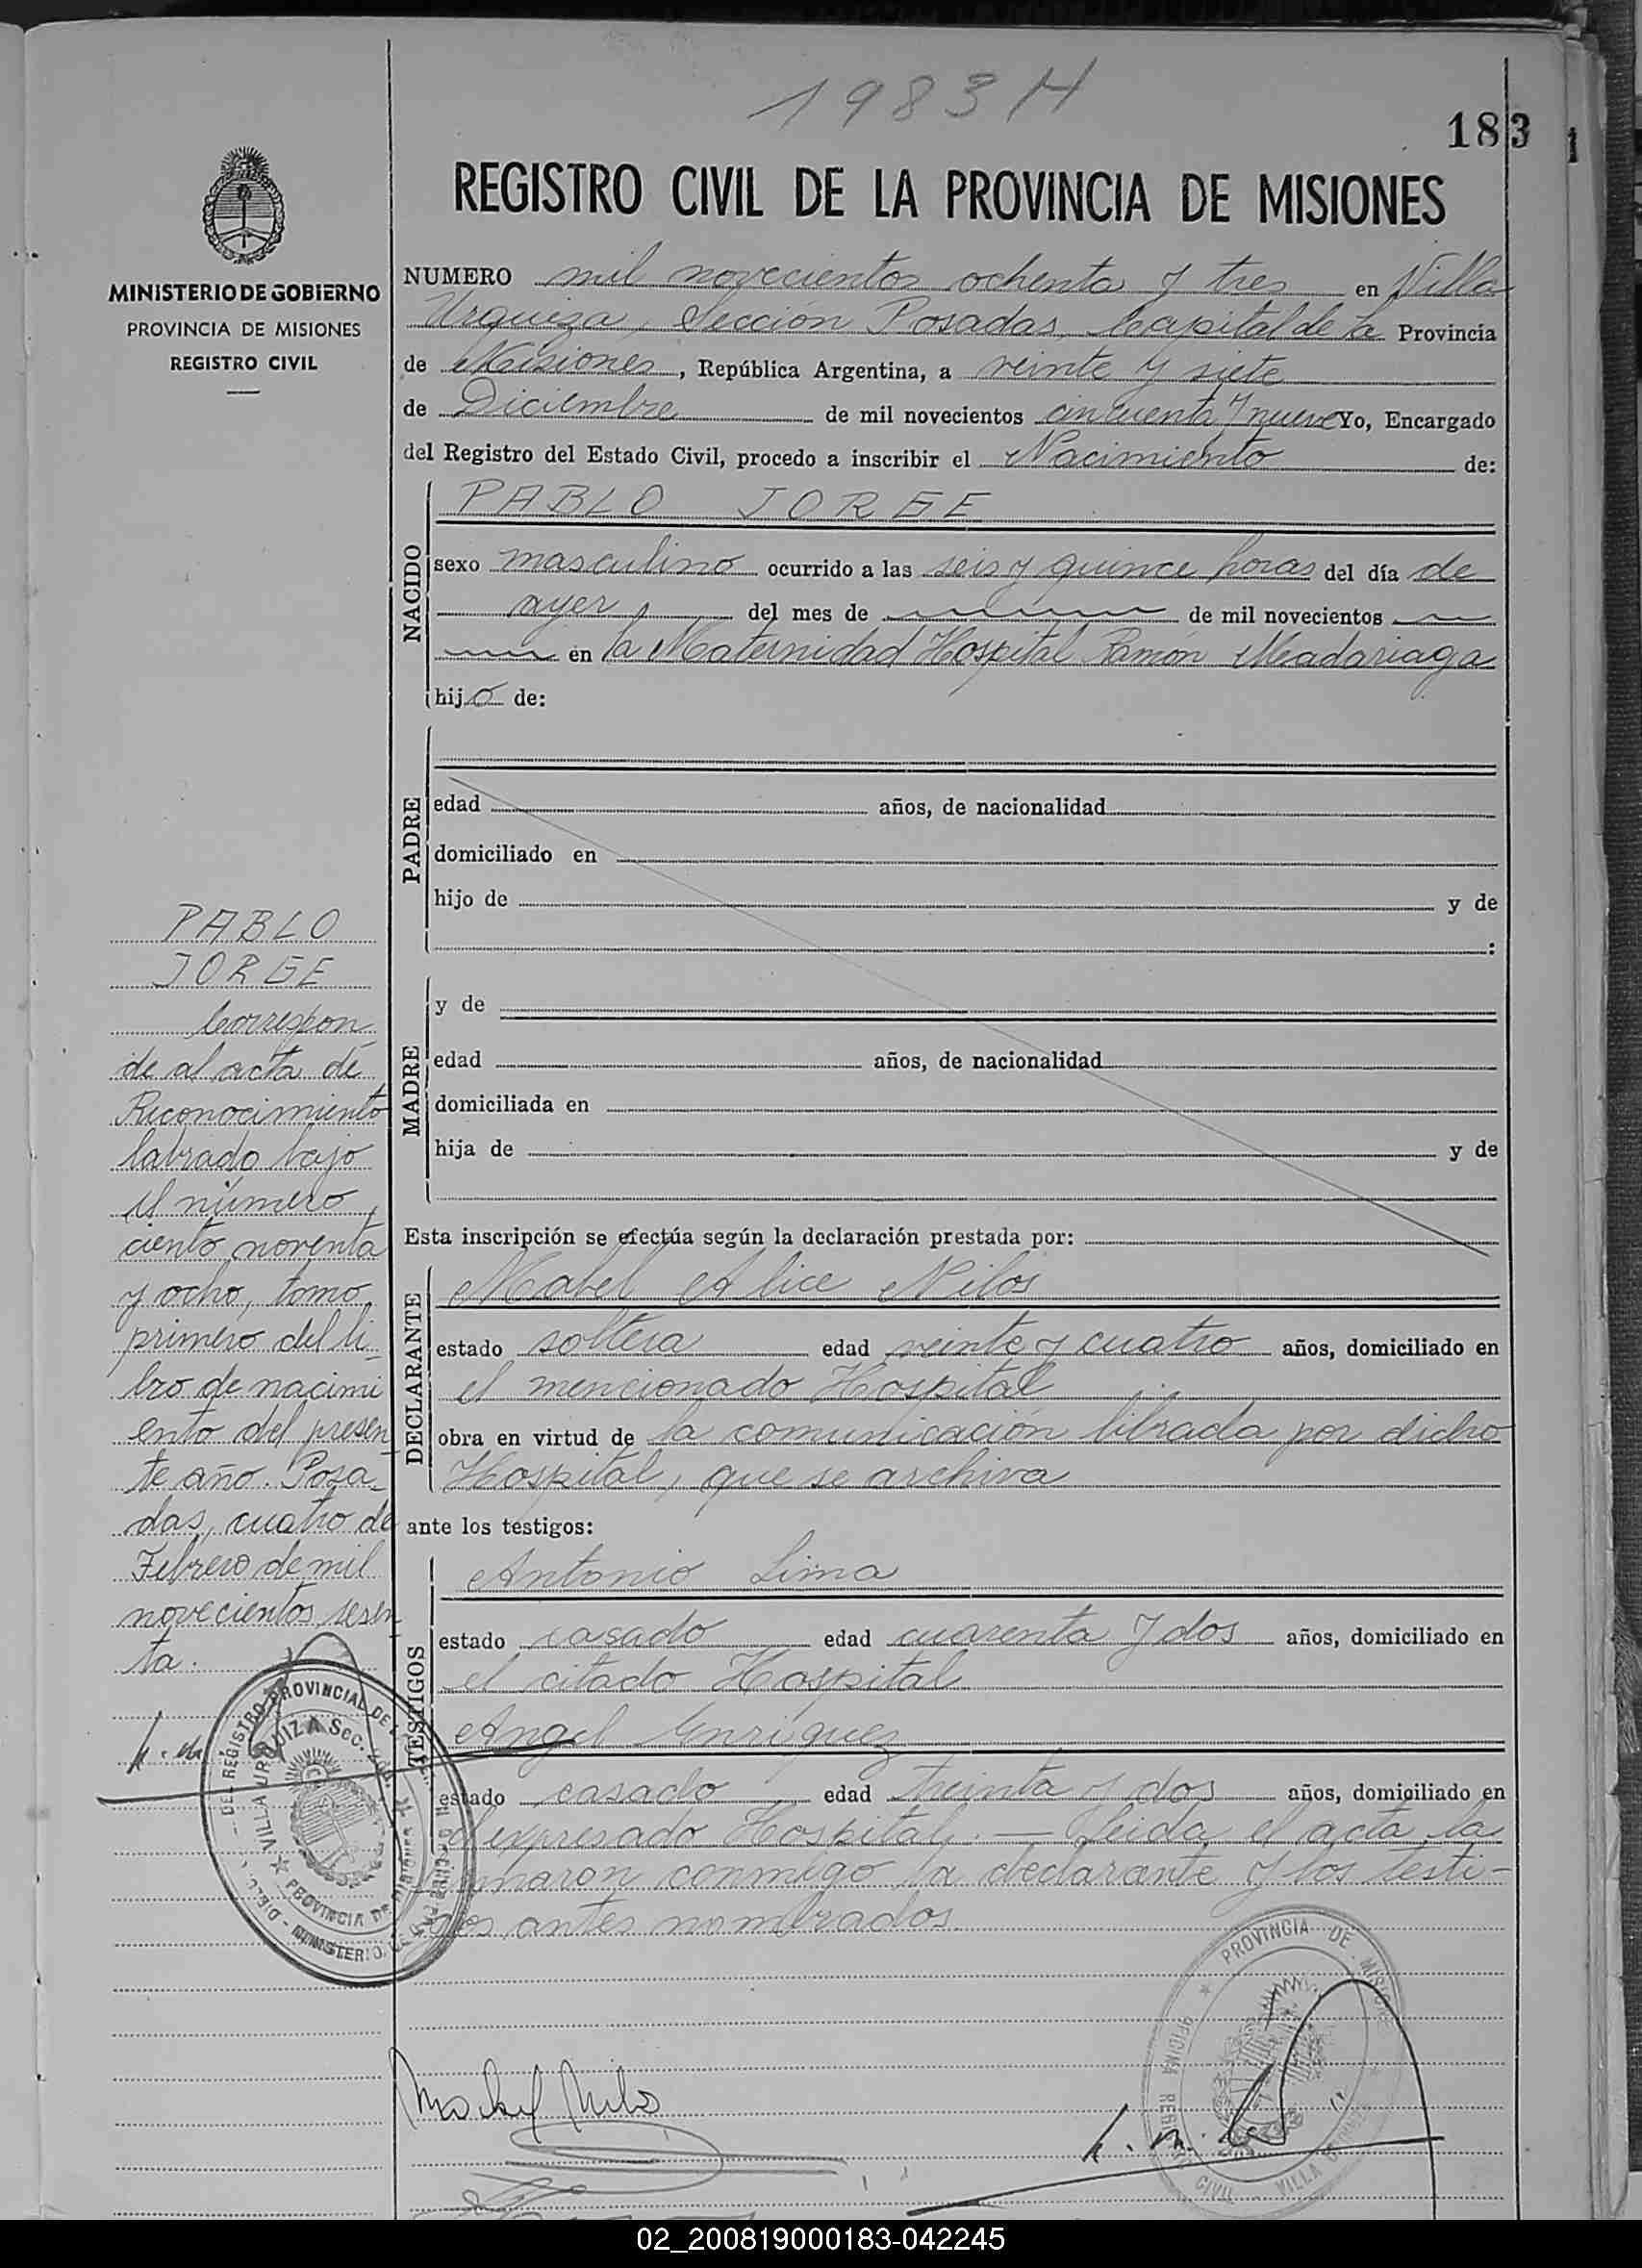 1983 H
183
1
REGISTRO CIVIL DE LA PROVINCIA DE MISIONES
MINISTERIO DE GOBIERNO
PROVINCIA DE MISIONES
REGISTRO CIVIL
NUMERO mil novecientos ochenta y tres en Villa
Urquiza, Sección Posadas, Capital de la Provincia
de Misiones, República Argentina, a veinte y siete
de Diciembre de mil novecientos cincuenta y nueve Yo, Encargado
del Registro del Estado Civil, procedo a inscribir el Nacimiento de:
NACIDO
PABLO JORGE
sexo masculino ocurrido a las seis y quince horas del día de
ayer del mes de de mil novecientos
en la Maternidad Hospital Ramón Madariaga
hijo de:
PADRE
edad años, de nacionalidad
domiciliado en
hijo de y de
:
MADRE
y de
edad años, de nacionalidad
domiciliada en
hija de y de
Esta inscripción se efectúa según la declaración prestada por:
DECLARANTE
Mabel Alice Nilos
estado soltera edad veinte y cuatro años, domiciliado en
el mencionado Hospital
obra en virtud de la comunicación librada por dicho
Hospital, que se archiva
ante los testigos:
TESTIGOS
Antonio Lima
estado casado edad cuarenta y dos años, domiciliado en
el citado Hospital
Angel Enriquez
estado casado edad treinta y dos años, domiciliado en
el expresado Hospital. — Leida el acta, la
firmaron conmigo la declarante y los testi-
gos antes nombrados.
PABLO
JORGE
Correspon
de al acta de
Reconocimiento
labrado bajo
el número
ciento noventa
y ocho, tomo
primero del li
bro de nacimi
ento del presen
te año. Posa-
das, cuatro de
Febrero de mil
novecientos sesen
ta.
VILLA URQUIZA Secc.
PROVINCIA DE MISIONES
PROVINCIA DE MISIONES
OFICINA REGISTRO CIVIL VILLA URQUIZA
Mabel Nilos
02_200819000183-042245